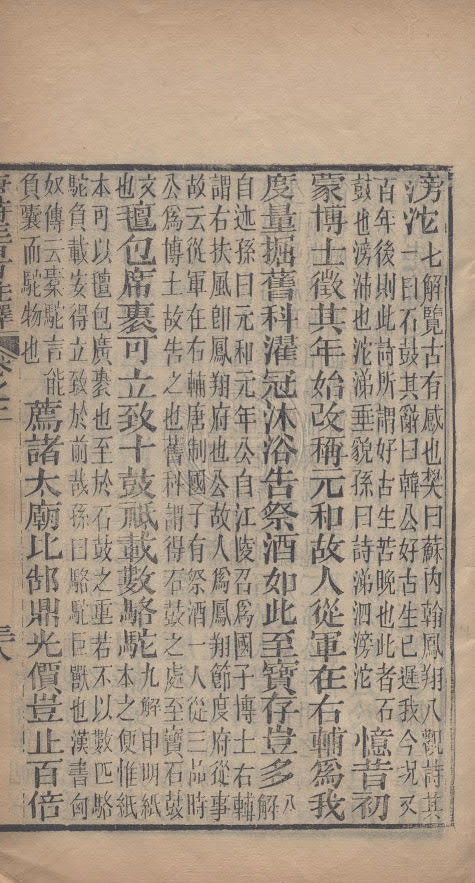 滂沱七解覽古有感也樊曰蘇內翰鳳翔八觀詩其
一曰石鼓其辭曰韓公好古生已遲我今況又
百年後則此詩所謂好古生苦晚也此者石
鼓也滂沛也沱涕垂貌孫曰詩涕泗滂沱憶昔初
蒙博士徵其年始改稱元和故人從軍在右輔爲我
度量掘舊科濯冠沐浴告祭酒如此至寶存豈多八解
自迹孫曰元和元年公自江陵召爲國子博士右輔
謂右扶風卽鳳翔府也公故人爲鳳翔節度府從事
故云從軍在右輔唐制國子有祭酒一人從三品時
公爲博士故告之也舊科謂得石鼓之處至寶石鼓
文也氊包席裹可立致十鼓祗載數駱駝九解申明紙
本之便惟紙
本可以氊包廣裹也至於石鼓之重若不以數匹駱
駝負載安得立致於前哉孫曰駱駝巨獸也漢書匈
奴傳云橐駝言能
負囊而駝物也薦諸太廟比郜鼎光價豈止百倍